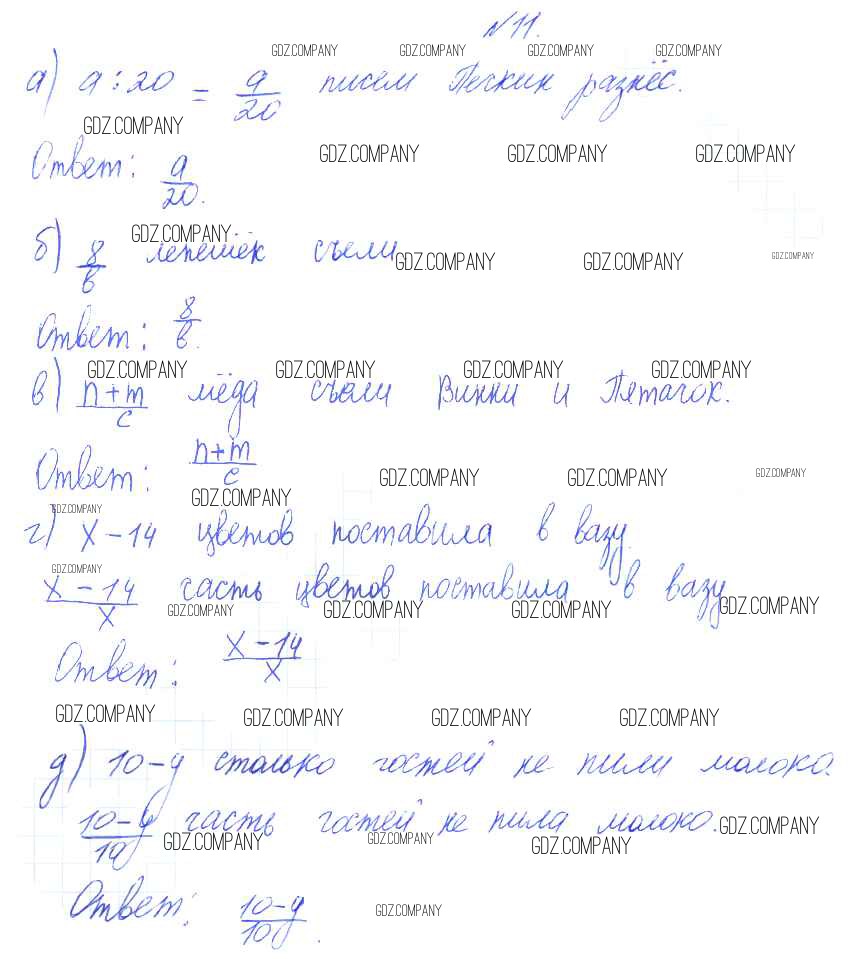 №11.
GDZ.COMPANY GDZ.COMPANY GDZ.COMPANY GDZ.COMPANY
а) a : 20 = a/20 писем Печкин разнёс.
GDZ.COMPANY
Ответ: a/20.
GDZ.COMPANY GDZ.COMPANY GDZ.COMPANY
GDZ.COMPANY
б) 8/b лепешек съели
GDZ.COMPANY GDZ.COMPANY GDZ.COMPANY
Ответ: 8/b.
GDZ.COMPANY GDZ.COMPANY GDZ.COMPANY GDZ.COMPANY
в) n+m/c мёда съели Винни и Пятачок.
Ответ: n+m/c
GDZ.COMPANY GDZ.COMPANY GDZ.COMPANY GDZ.COMPANY
GDZ.COMPANY
г) x-14 цветов поставила в вазу
GDZ.COMPANY
x-14/x часть цветов поставила в вазу
GDZ.COMPANY GDZ.COMPANY GDZ.COMPANY GDZ.COMPANY
Ответ: x-14/x
GDZ.COMPANY GDZ.COMPANY GDZ.COMPANY GDZ.COMPANY
д) 10-y столько гостей не пили молоко.
10-y/10 часть гостей не пила молоко.
GDZ.COMPANY GDZ.COMPANY GDZ.COMPANY GDZ.COMPANY
Ответ: 10-y/10.
GDZ.COMPANY